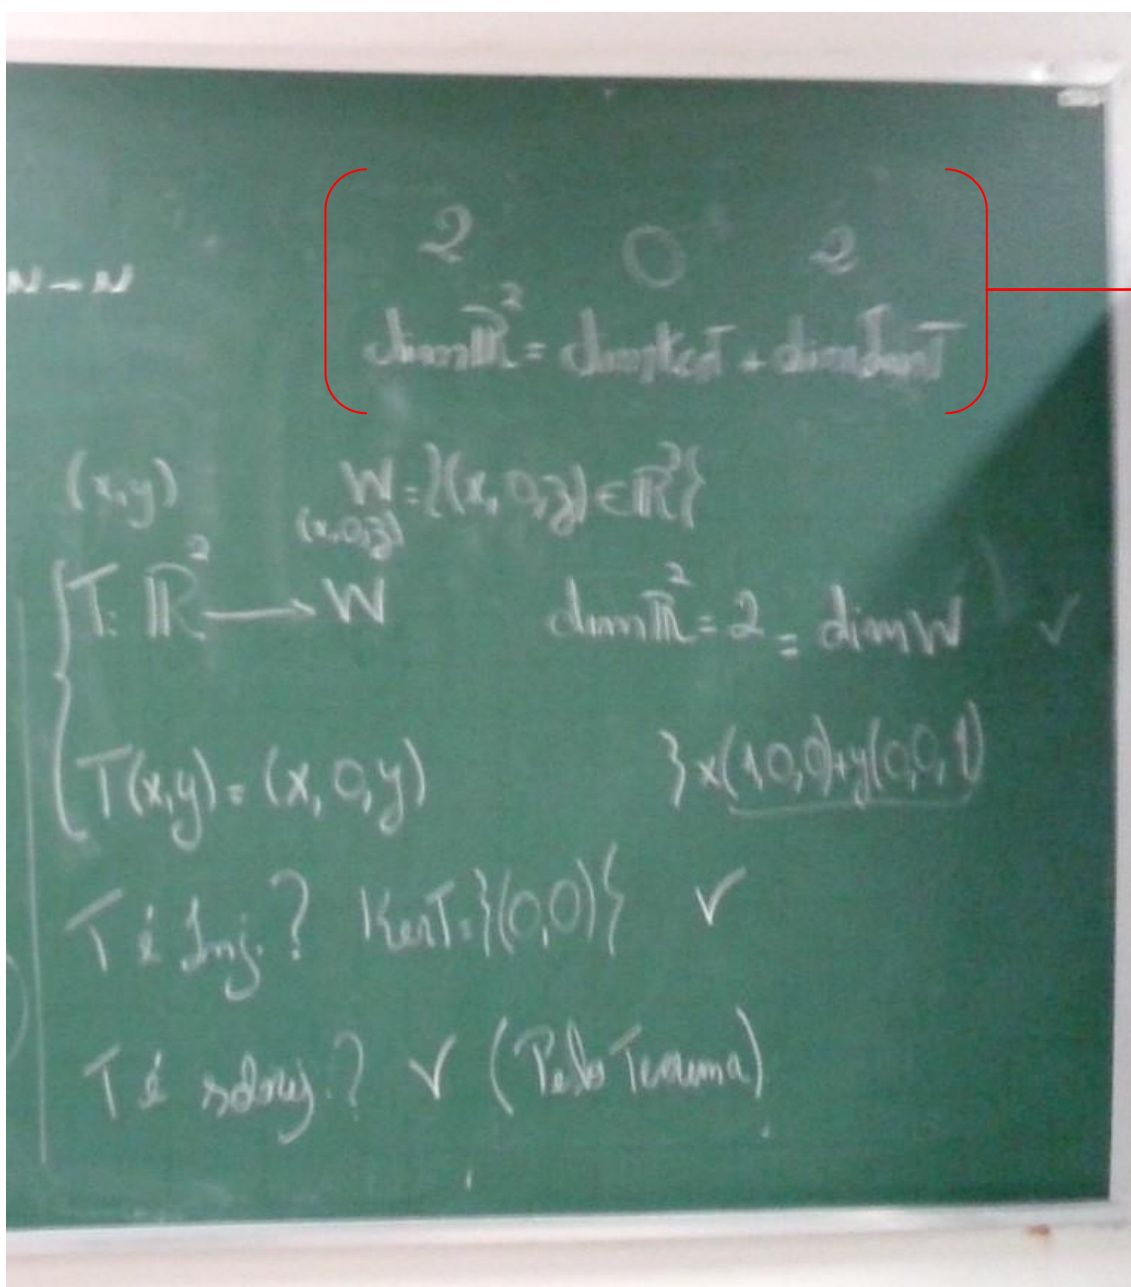 N - N
2 0 2
dim ℝ² = dim KerT + dim ImT
(x,y) W = {(x,0,z) ∈ ℝ³}
(x,0,z)
T: ℝ² → W dim ℝ² = 2 = dim W ✓
T(x,y) = (x, 0, y) } x(1,0,0)+y(0,0,1)
T é Inj.? KerT = {(0,0)} ✓
T é sobrej.? ✓ (Pelo Teorema)